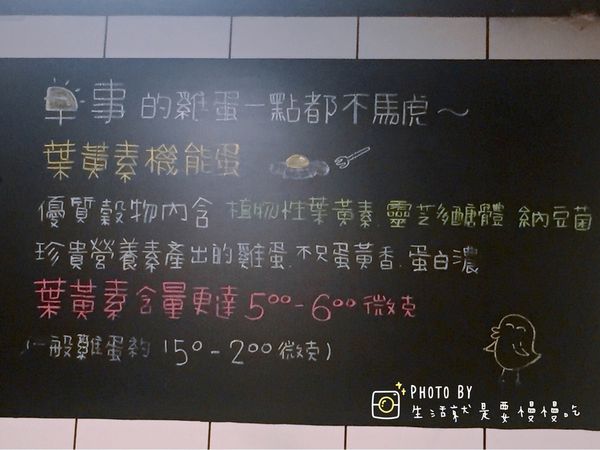 早事的雞蛋一點都不馬虎～
葉黃素機能蛋
優質穀物內含 植物性葉黃素.靈芝多醣體 納豆菌
珍貴營養素產出的雞蛋.不只蛋黃香.蛋白濃
葉黃素含量更達500-600微克
(一般雞蛋約 150-200微克)
PHOTO BY
生活就是要慢慢吃